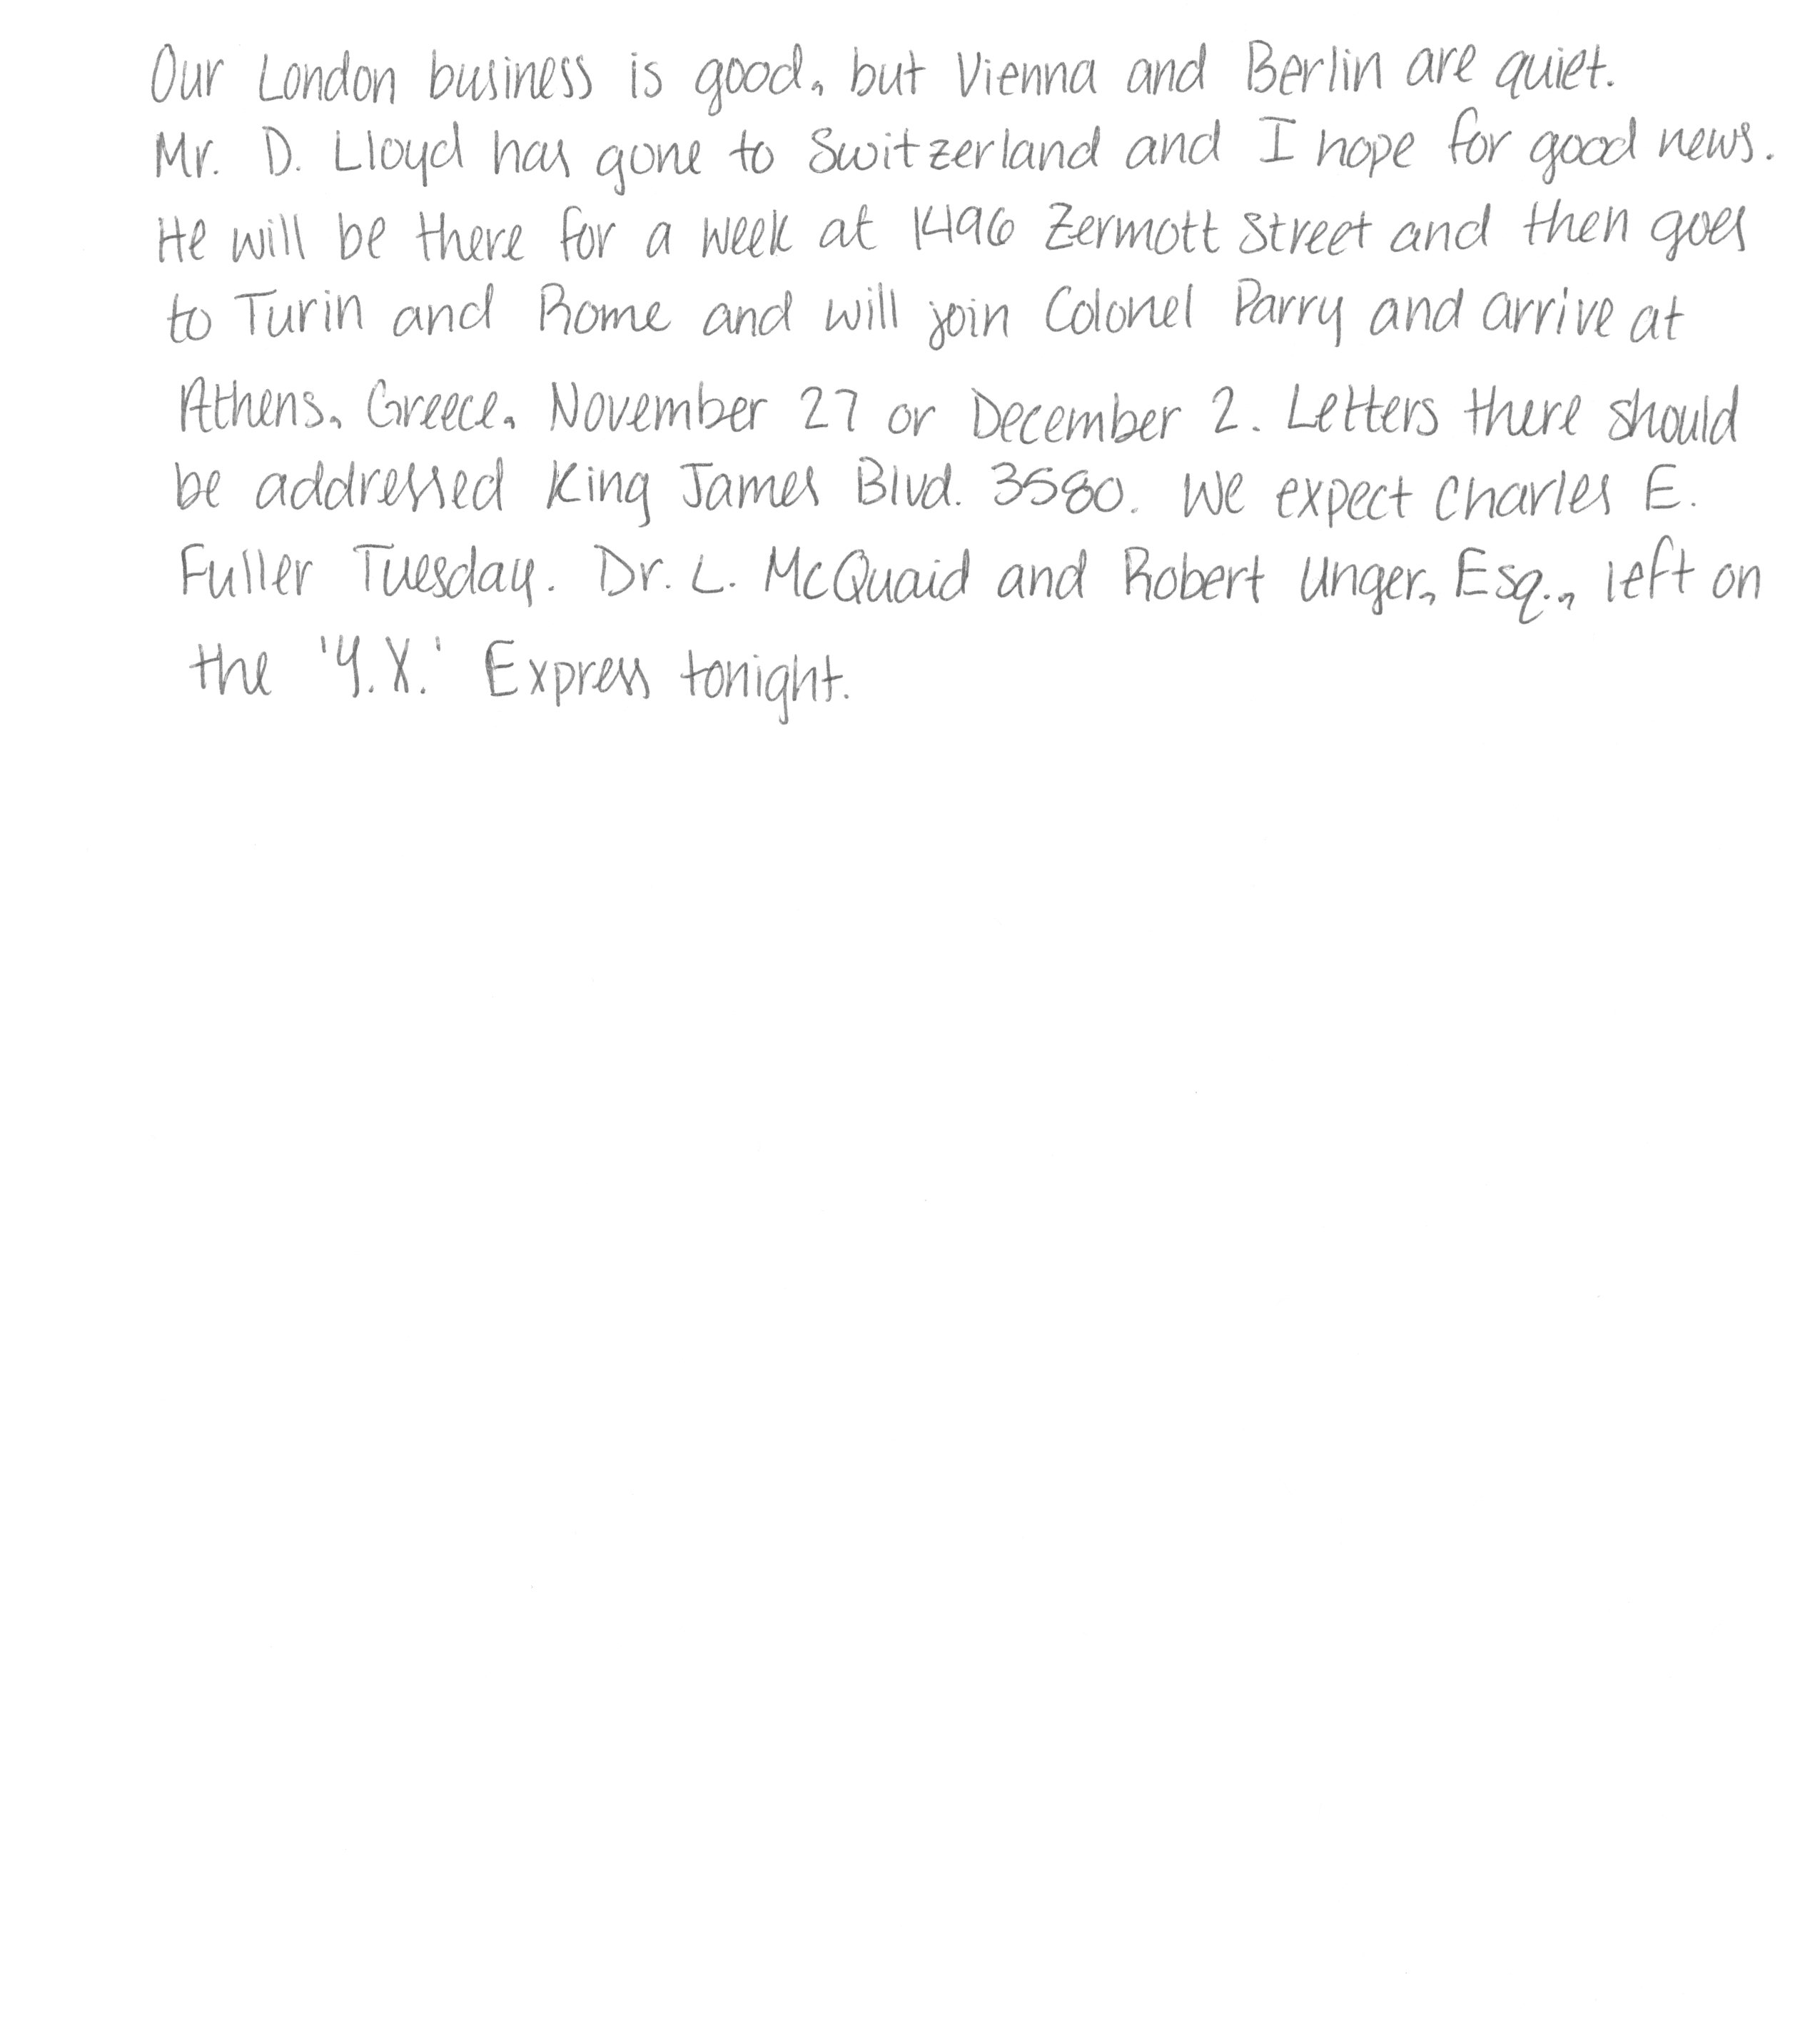 Our London business is good, but Vienna and Berlin are quiet.
Mr. D. Lloyd has gone to Switzerland and I hope for good news.
He will be there for a week at 1496 Zermott Street and then goes
to Turin and Rome and will join Colonel Parry and arrive at
Athens, Greece, November 27 or December 2. Letters there should
be addressed King James Blvd. 3580. We expect Charles E.
Fuller Tuesday. Dr. L. McQuaid and Robert Unger, Esq., left on
the 'Y.X.' Express tonight.